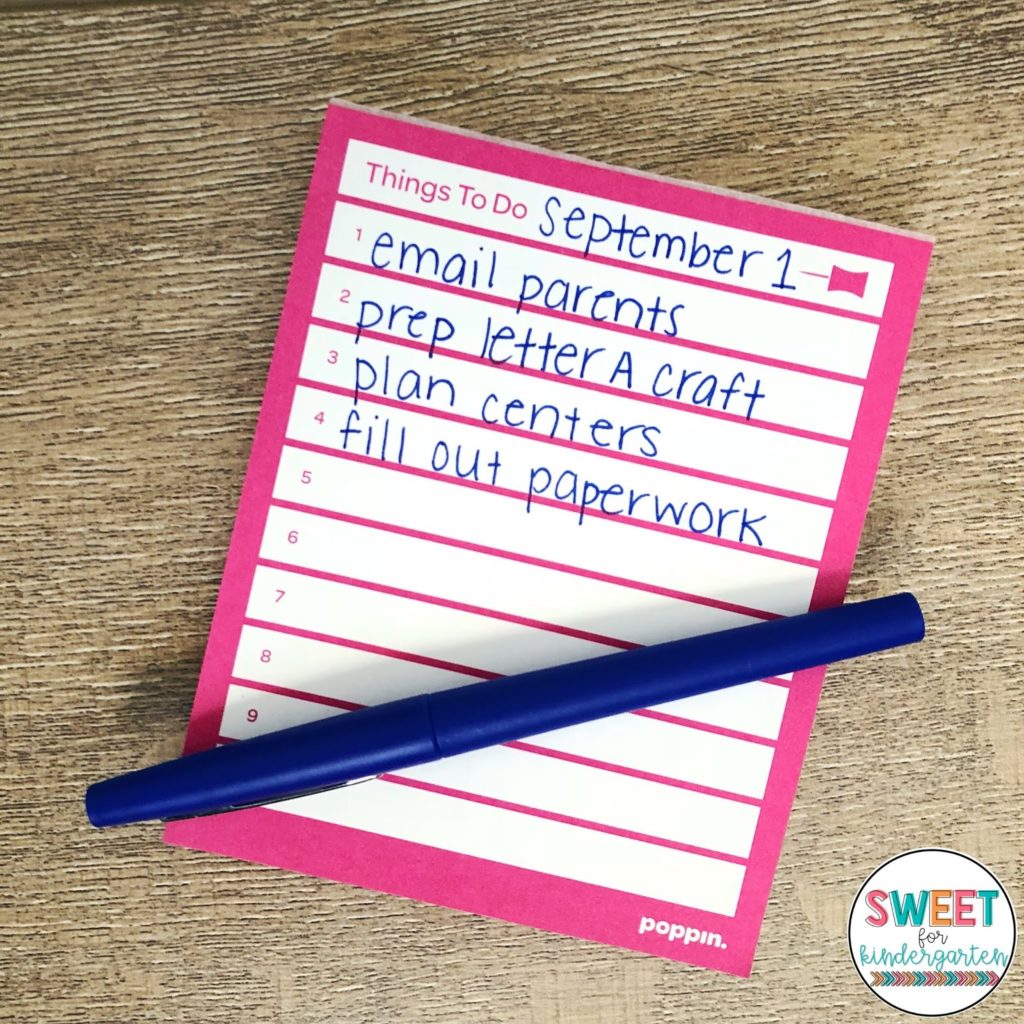 Things To Do September 1
1 email parents
2 prep letter A craft
3 plan centers
4 fill out paperwork
5
6
7
8
9
poppin.
SWEET
for
kindergarten